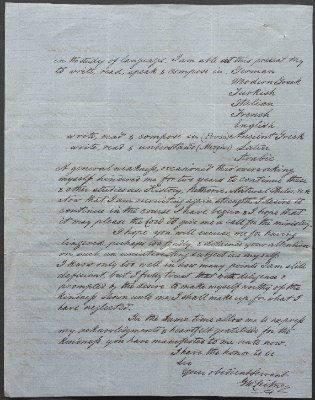 in the study of languages. I am able at this present day
to write, read, speak & compose in German
Modern Greek
Turkish
Italian
French
English
write, read & compose in (Persic) Ancient Greek
write, read & understand Latin
Arabic
A general weakness, occasioned this overworking
myself hindered me for two years to continue these
& other studies as History, Natural Philos. &c &
Now that I am recruiting again strength, I desire to
continue in the course I have begun & I hope that
it may please the Lord to give me a call for the ministry.
I hope you will excuse me for having
lingered perhaps too freely, & detained your attention
on such an uninteresting subject as myself.
I know only too well in how many points I am still
deficient, but I firmly trust that with diligence &
prompted by the desire to make myself worthy of the
kindness shown unto me I shall make up, for what I
have neglected.
In the same time allow me to express
my acknowledgments & heartfelt gratitude for the
kindness you have manifested to me unto now.
I have the honor to be
Sir
Your obedient servant